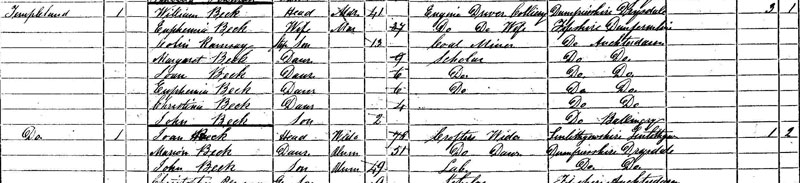 Templeland 1 William Beck Head Mar 41 Engine Driver Colliery Dumfriesshire Drysdale 3 1
Euphemia Beck Wife Mar 37 Do Do Wife Fifeshire Dunfermline
Colin Ramsay Son 13 Coal Miner Do Auchterderran
Margaret Beck Daur 9 Scholar Do Do
Joan Beck Daur 6 Do Do Do
Euphemia Beck Daur 6 Do Do Do
Christina Beck Daur 4 Do Do
John Beck Son 2 Do Ballingry
Do 1 Joan Beck Head Wido Crofter Wido Linlithgowshire Linlithgow 1 2
Marion Beck Daur Unm 51 Do Daur Dumfriesshire Drysdale
John Beck Son Unm 49 Labr Do Do